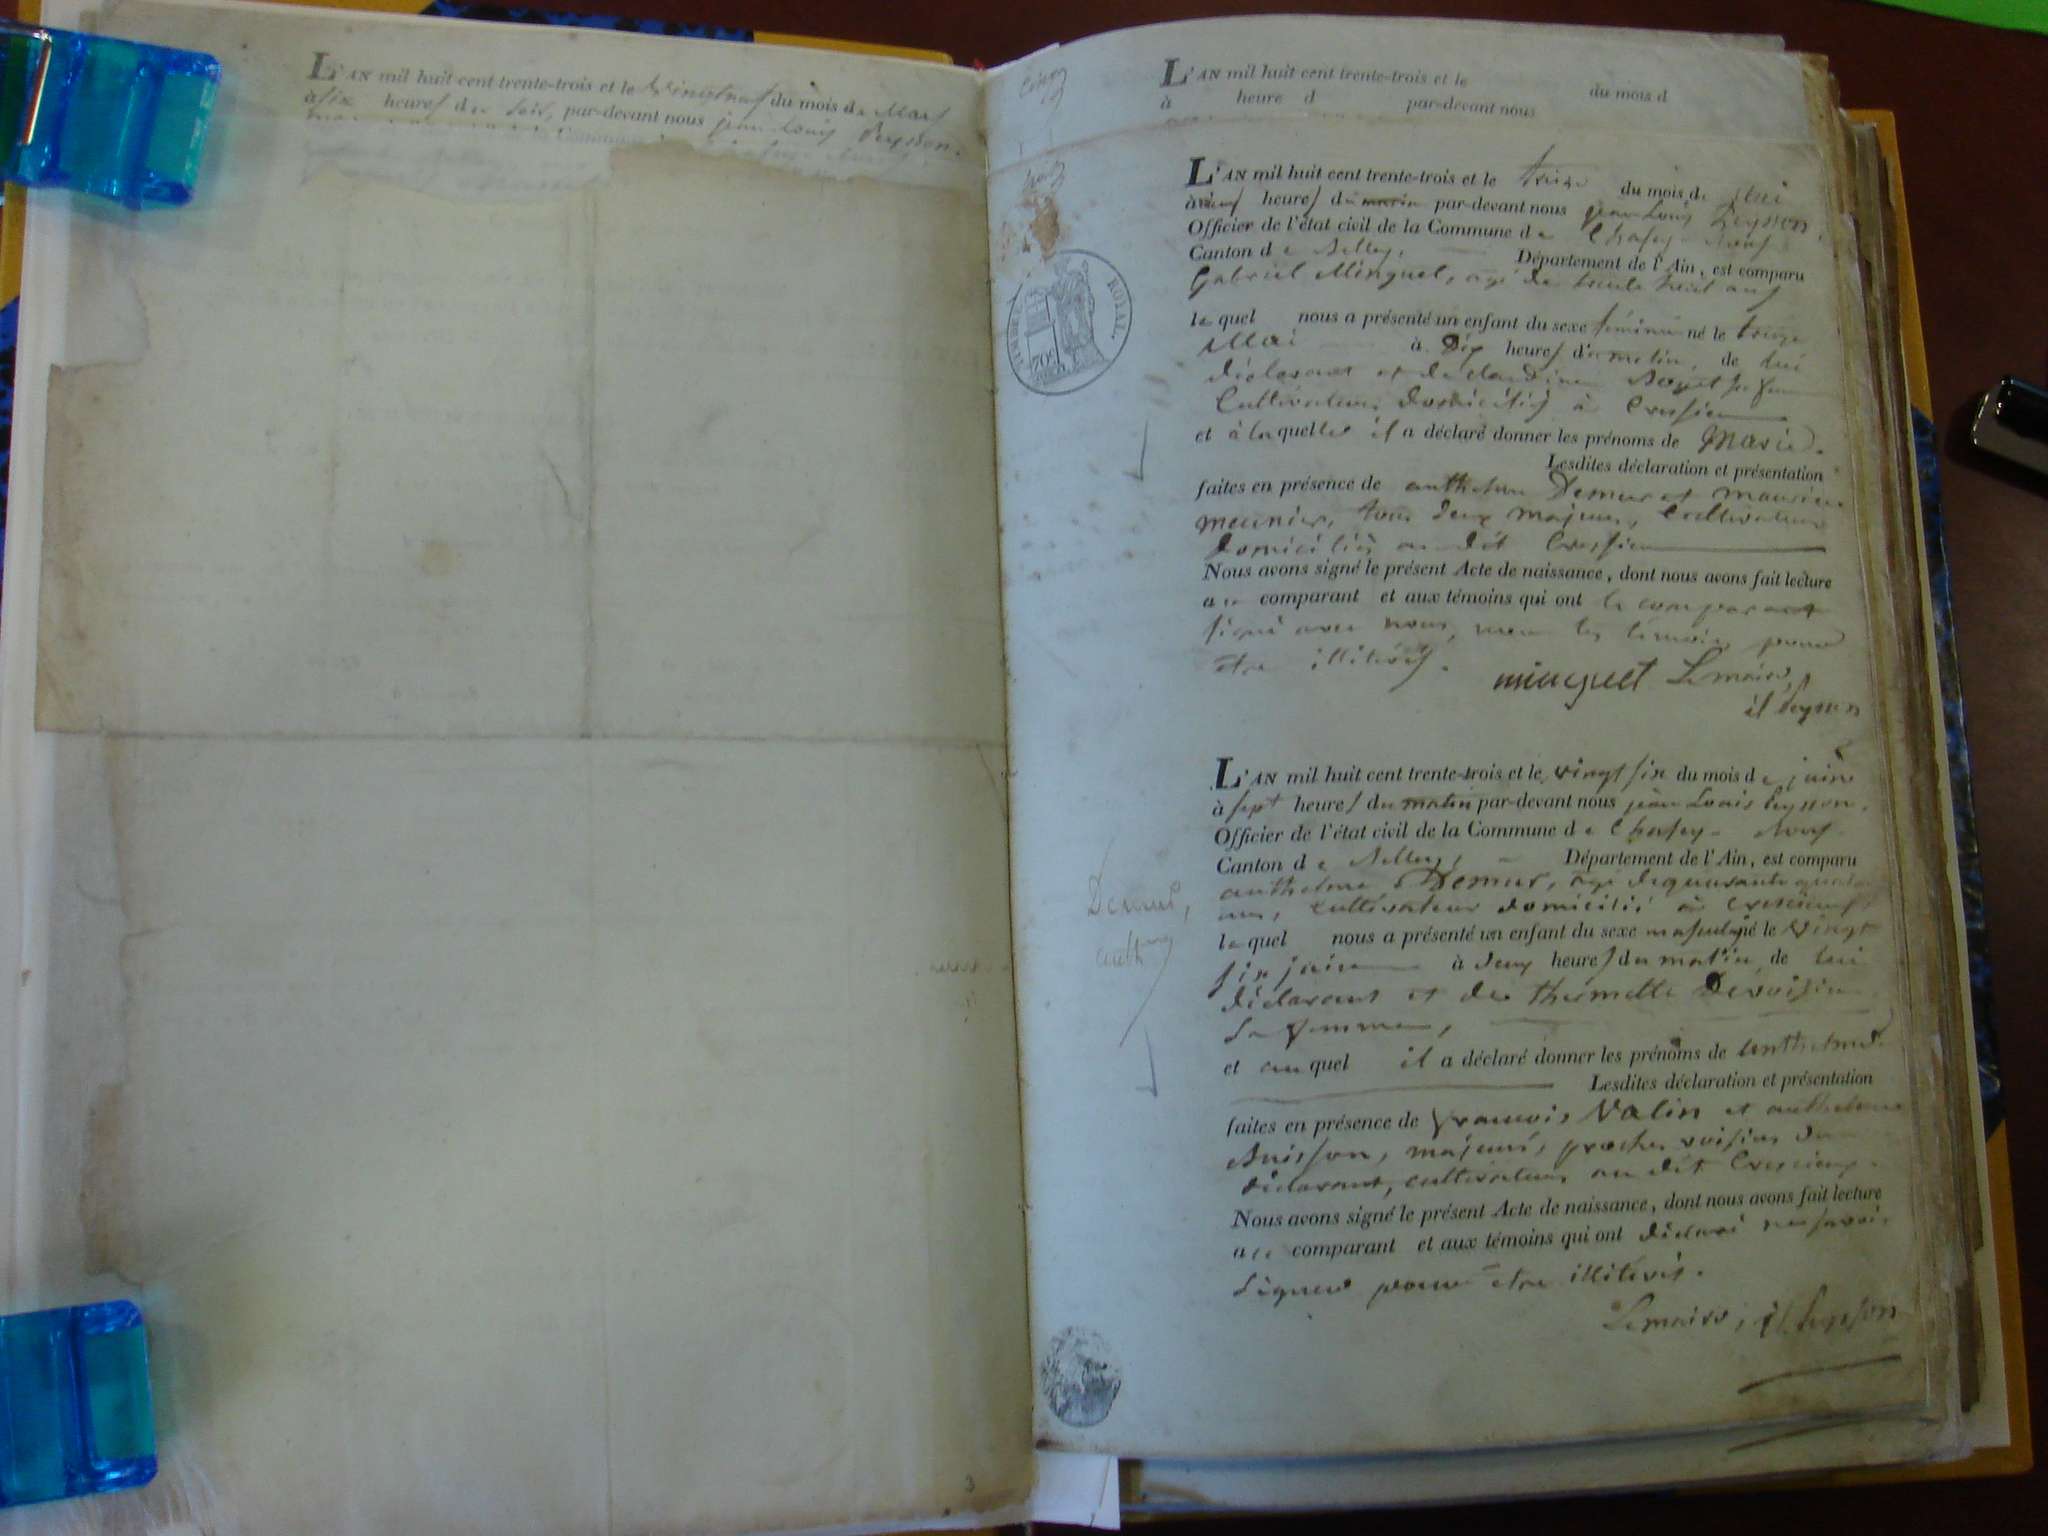 L'AN mil huit cent trente-trois et le du mois de Mars
à six heures du soir, par-devant nous jean Louis Peysson.
L'AN mil huit cent trente-trois et le du mois d
à heure d par-devant nous
L'AN mil huit cent trente-trois et le treize du mois de Mai
à heures du matin par-devant nous jean Louis Peysson.
Officier de l'état civil de la Commune de Chasey-
Canton de Belley, Département de l'Ain, est comparu
Gabriel Minguet, agé de trente huit ans
lequel nous a présenté un enfant du sexe féminin né le treize
Mai à Dix heures du matin, de lui
déclarant et de Claudine sa femme
Cultivateurs domiciliés à Cressieu
et à laquelle il a déclaré donner les prénoms de Marie.
Lesdites déclaration et présentation
faites en présence de anthelme Demur et maurice
meunier, tous deux majeurs, Cultivateurs
domiciliés au dit Cressieu
Nous avons signé le présent Acte de naissance, dont nous avons fait lecture
au comparant et aux témoins qui ont le comparant
signé avec nous, non les témoins pour
etre illitérés.
minguet Le maire,
jl Peysson
L'AN mil huit cent trente-trois et le vingt six du mois de juin
à sept heures du matin par-devant nous jean Louis Peysson.
Officier de l'état civil de la Commune de Chasey-
Canton de Belley, Département de l'Ain, est comparu
anthelme Demur, agé de quarante quatre
ans, cultivateur domicilié à Crescieux,
lequel nous a présenté un enfant du sexe masculin né le vingt
six juin à deux heures du matin, de lui
déclarant et de thémette Devoisin
sa femme,
et auquel il a déclaré donner les prénoms de anthelme.
Lesdites déclaration et présentation
faites en présence de françois Valin et anthelme
Buisson, majeurs, proches voisins du
déclarant, cultivateurs au dit Crescieux.
Nous avons signé le présent Acte de naissance, dont nous avons fait lecture
au comparant et aux témoins qui ont déclaré ne savoir
signer pour etre illitérés.
Le maire, jl Peysson
Demur,
anthme
TIMBRE ROYAL.
70c
3